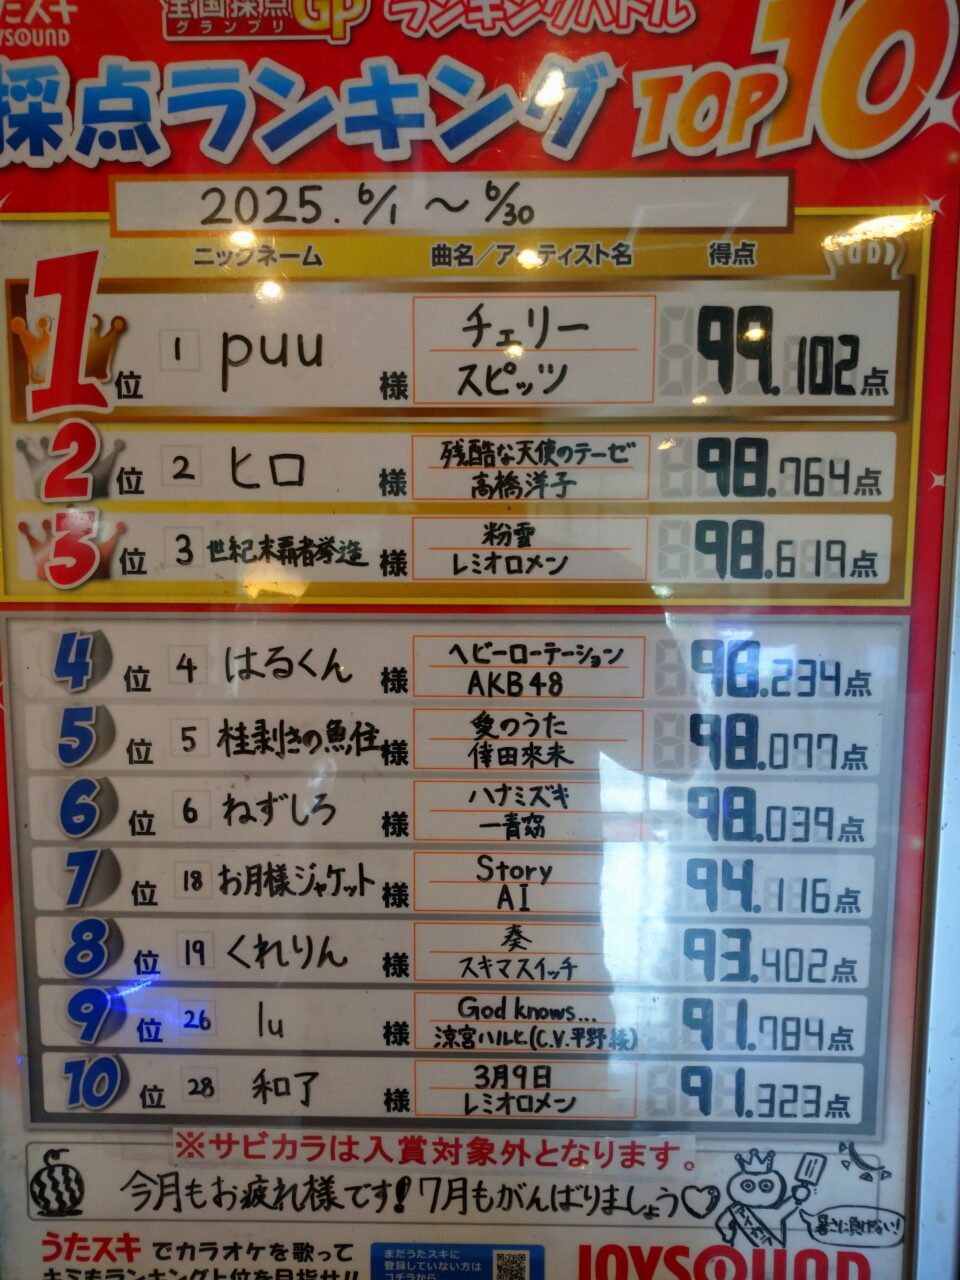 うたスキ
JOYSOUND
全国採点
グランプリ
GP
ランキングバトル
採点ランキング TOP10
2025. 6/1 ～ 6/30
ニックネーム 曲名/アーティスト名 得点
1位 1 puu 様 チェリー
スピッツ 99.102点
2位 2 ヒロ 様 残酷な天使のテーゼ
高橋洋子 98.764点
3位 3 世紀末覇者挙造 様 粉雪
レミオロメン 98.619点
4位 4 はるくん 様 ヘビーローテーション
AKB48 98.234点
5位 5 桂剥きの魚住 様 愛のうた
倖田來未 98.077点
6位 6 ねずしろ 様 ハナミズキ
一青窈 98.039点
7位 18 お月様ジャケット 様 Story
AI 94.116点
8位 19 くれりん 様 奏
スキマスイッチ 93.402点
9位 26 lu 様 God knows...
涼宮ハルヒ(C.V.平野綾) 91.784点
10位 28 和了 様 3月9日
レミオロメン 91.323点
※サビカラは入賞対象外となります。
今月もお疲れ様です!7月もがんばりましょう♡
暑さに負けない!
うたスキ でカラオケを歌って
キミもランキング上位を目指せ!!
まだうたスキに
登録していない方は
コチラから
JOYSOUND